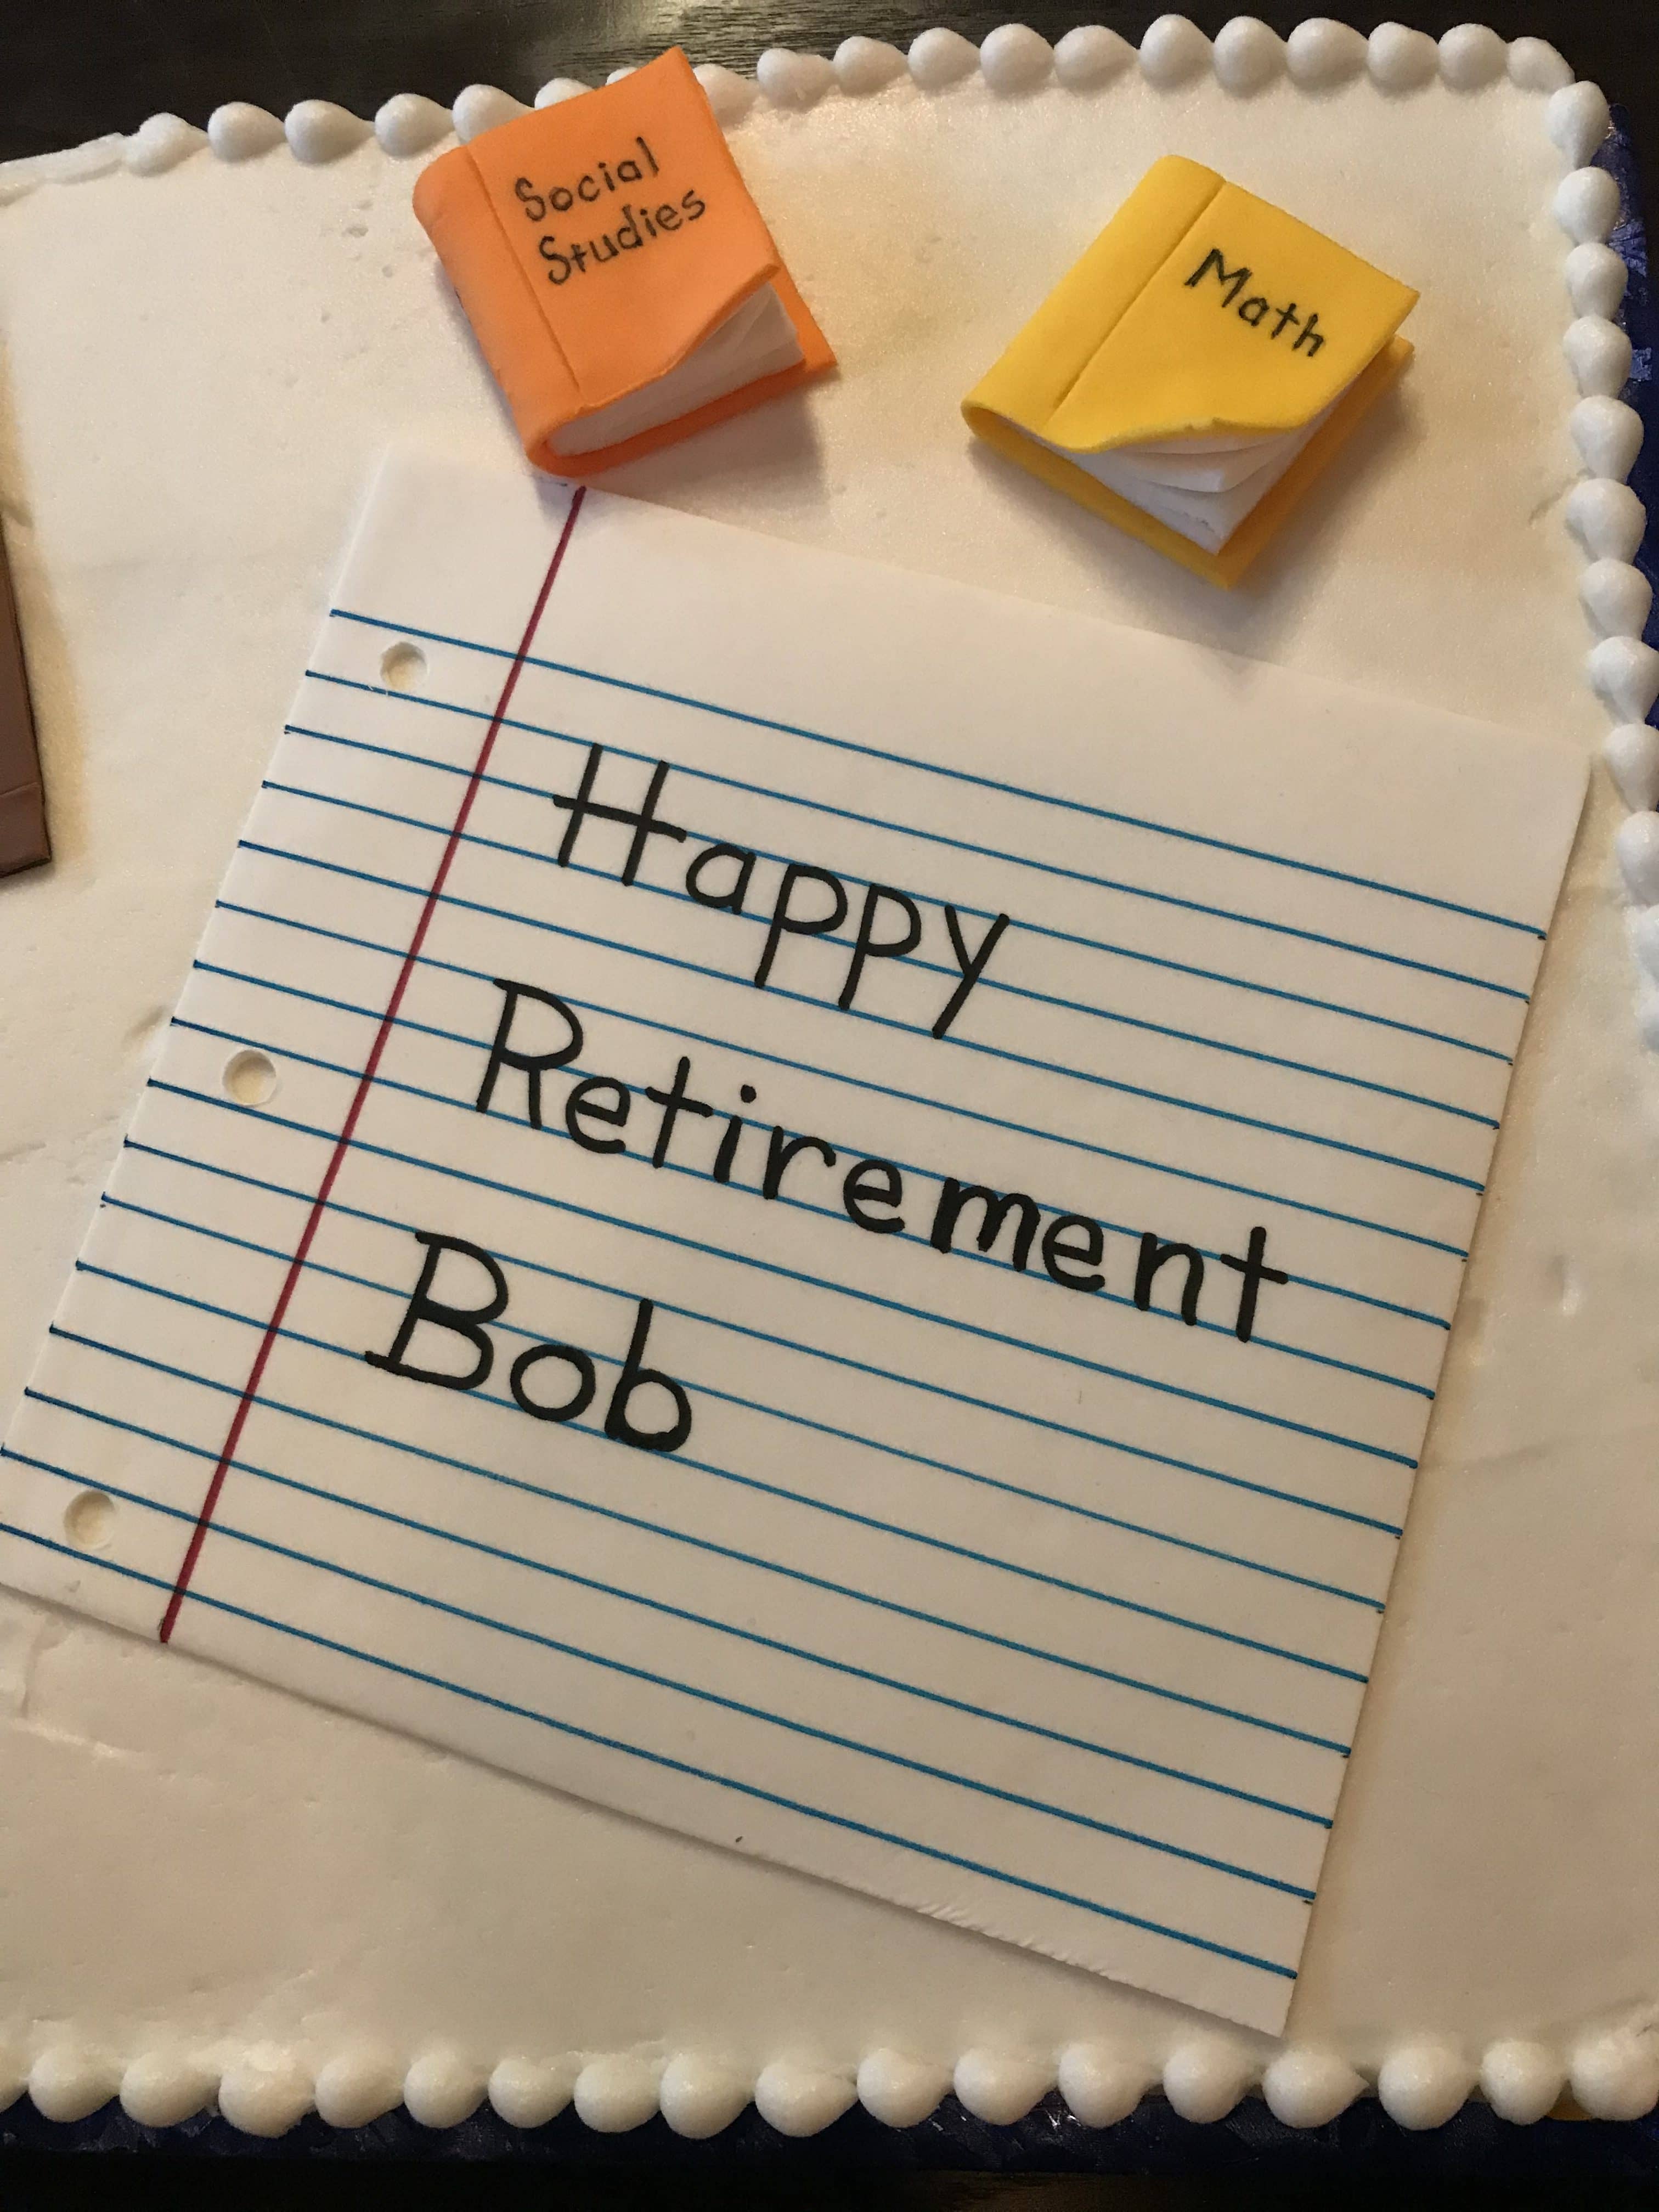 Social
Studies
Math
Happy
Retirement
Bob